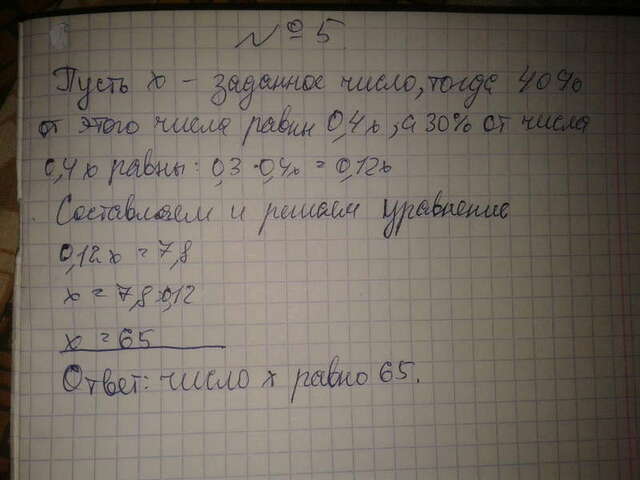 №5
Пусть x - заданное число, тогда 40%
от этого числа равны 0,4x, а 30% от числа
0,4x равны: 0,3·0,4x = 0,12x
Составляем и решаем уравнение
0,12x = 7,8
x = 7,8:0,12
x = 65
Ответ: число x равно 65.